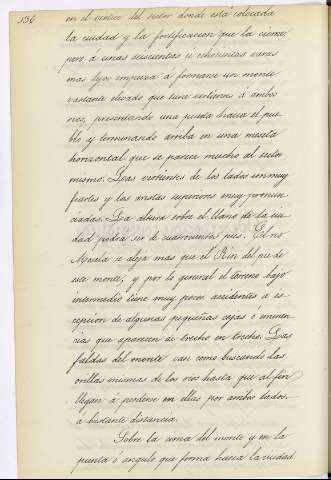 136
en el vertice del sector donde está colocada
la ciudad y la fortificacion que la cierra;
pero á unas doscientas u ochocientas varas
mas lejos empieza á formarse un monte
bastante elevado que tiene vertientes á ambos
rios, presentando una punta hacia el pue-
blo y terminando arriba en una meseta
horizontal que se parece mucho al sector
mismo. Las vertientes de los lados son muy
fuertes y las aristas superiores muy pronun-
ciadas. La altura sobre el llano de la ciu-
dad podrá ser de cuatrocientos pies. El rio
Mosela se aleja mas que el Rin del pie de
este monte, y por lo general el terreno bajo
intermedio tiene muy pocos accidentes a es-
cepcion de algunas pequeñas cejas o eminen-
cias que aparecen de trecho en trecho. Las
faldas del monte van como buscando las
orillas mismas de los rios hasta que al fin
llegan á perderse en ellas por ambos lados
á bastante distancia.
Sobre la cima del monte y en la
punta ó angulo que forma hacia la ciudad